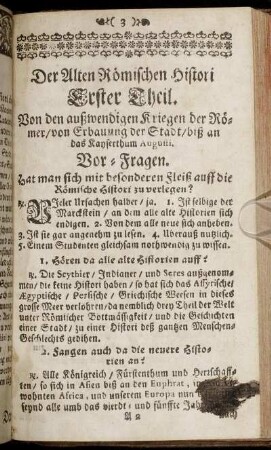 ( 3 )
Der Alten Römischen Histori
Erster Theil.
Von den außwendigen Kriegen der Rö-
mer/von Erbauung der Stadt/biß an
das Kayserthum Augusti.
Vor-Fragen.
Hat man sich mit besonderen Fleiß auff die
Römische Histori zu verlegen?
℟. Vieler Ursachen halber / ja. 1. Ist selbige der
Marckstein / an dem alle alte Historien sich
endigen. 2. Von dem alle neue sich anheben.
3. Ist sie gar angenehm zu lesen. 4. Überauß nutzlich.
5. Einem Studenten gleichsam nothwendig zu wissen.
1. Hören da alle alte Historien auff?
℟. Die Scythier / Indianer / und Seres außgenom-
men / die keine Histori haben / so hat sich das Assyrische /
Ægyptische / Persische / Griechische Wesen in dieses
grosse Meer verlohren / da nemblich drey Theil der Welt
unter Römischer Bottmässigkeit / und die Geschichten
einer Stadt / zu einer Histori deß gantzen Menschen-
Geschlechts gediehen.
2. Fangen auch da die neuere Histo-
rien an?
℟. Alle Königreich / Fürstenthum und Herrschaff-
ten / so sich in Asien biß an den Euphrat, in
wohnten Africa, und unserem Europa nun
seynd alle umb das vierdt / und fünffte Jah
A 2 nach